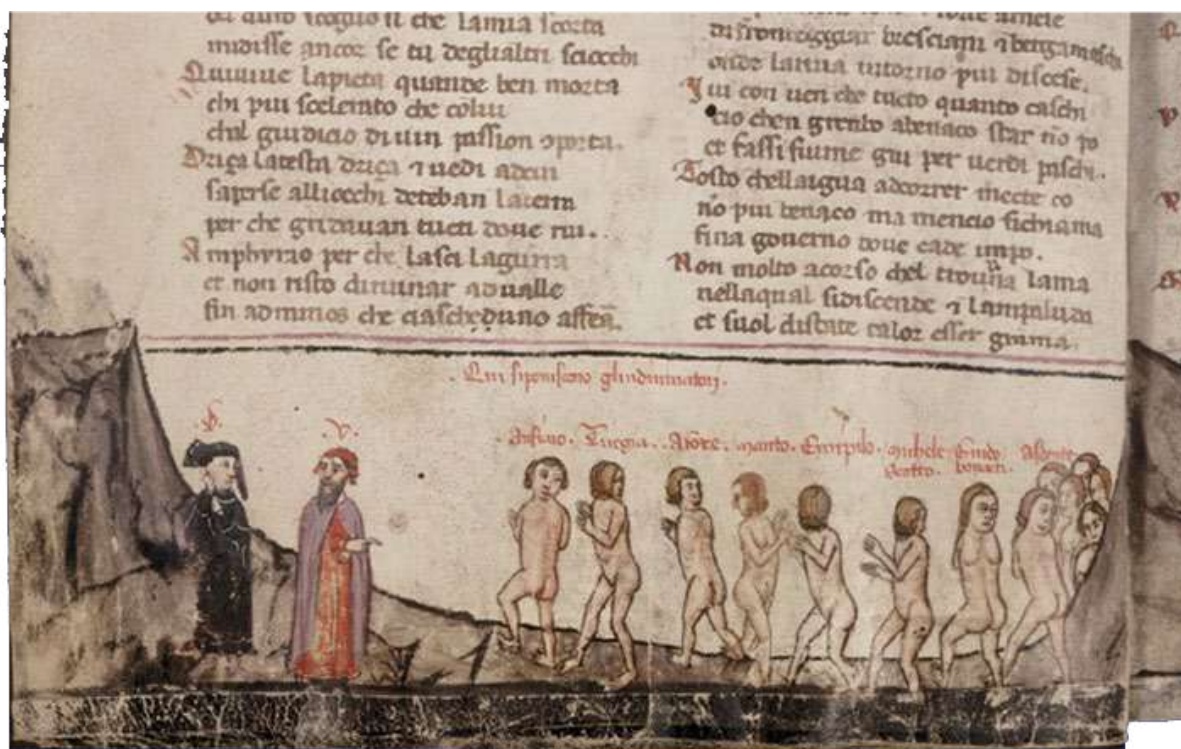 duro scoglio si che lamia scorta
midisse ancor se tu deglialtri sciocchi
Quiuiue lapieta quande ben morta
chi piu scelerato che colui
chal giudicio diuin passion oporta.
Driça latesta driça 7 uedi adcui
saperse alliocchi deteban laterra
per che gridauan tucti doue rui..
Amphyrao per che lasci laguirra
et non risto diruinar adualle
fin adminos che ciascheduno affera.
difronteggiar bresciani 7 bergamaschi
onde lariua intorno piu discese.
Iui con uen che tucto quanto caschi
cio chen grenbo abenaco star nō po
et fassi fiume giu per uerdi paschi.
Tosto chellaigua adcorrer mecte co
nō piu benaco ma mencio sichiama
fina gouerno doue cade impo.
Non molto acorso chel trouua lama
nellaqual sidiscende 7 lampaluda
et suol distate calor esser grama.
. Qui siponiscono glindiuinatori.
.D. .V.
. Anfirao . Tiregia . Aronte . manto . Euripilo . michele Guido Asdente
scotto . bonacti .